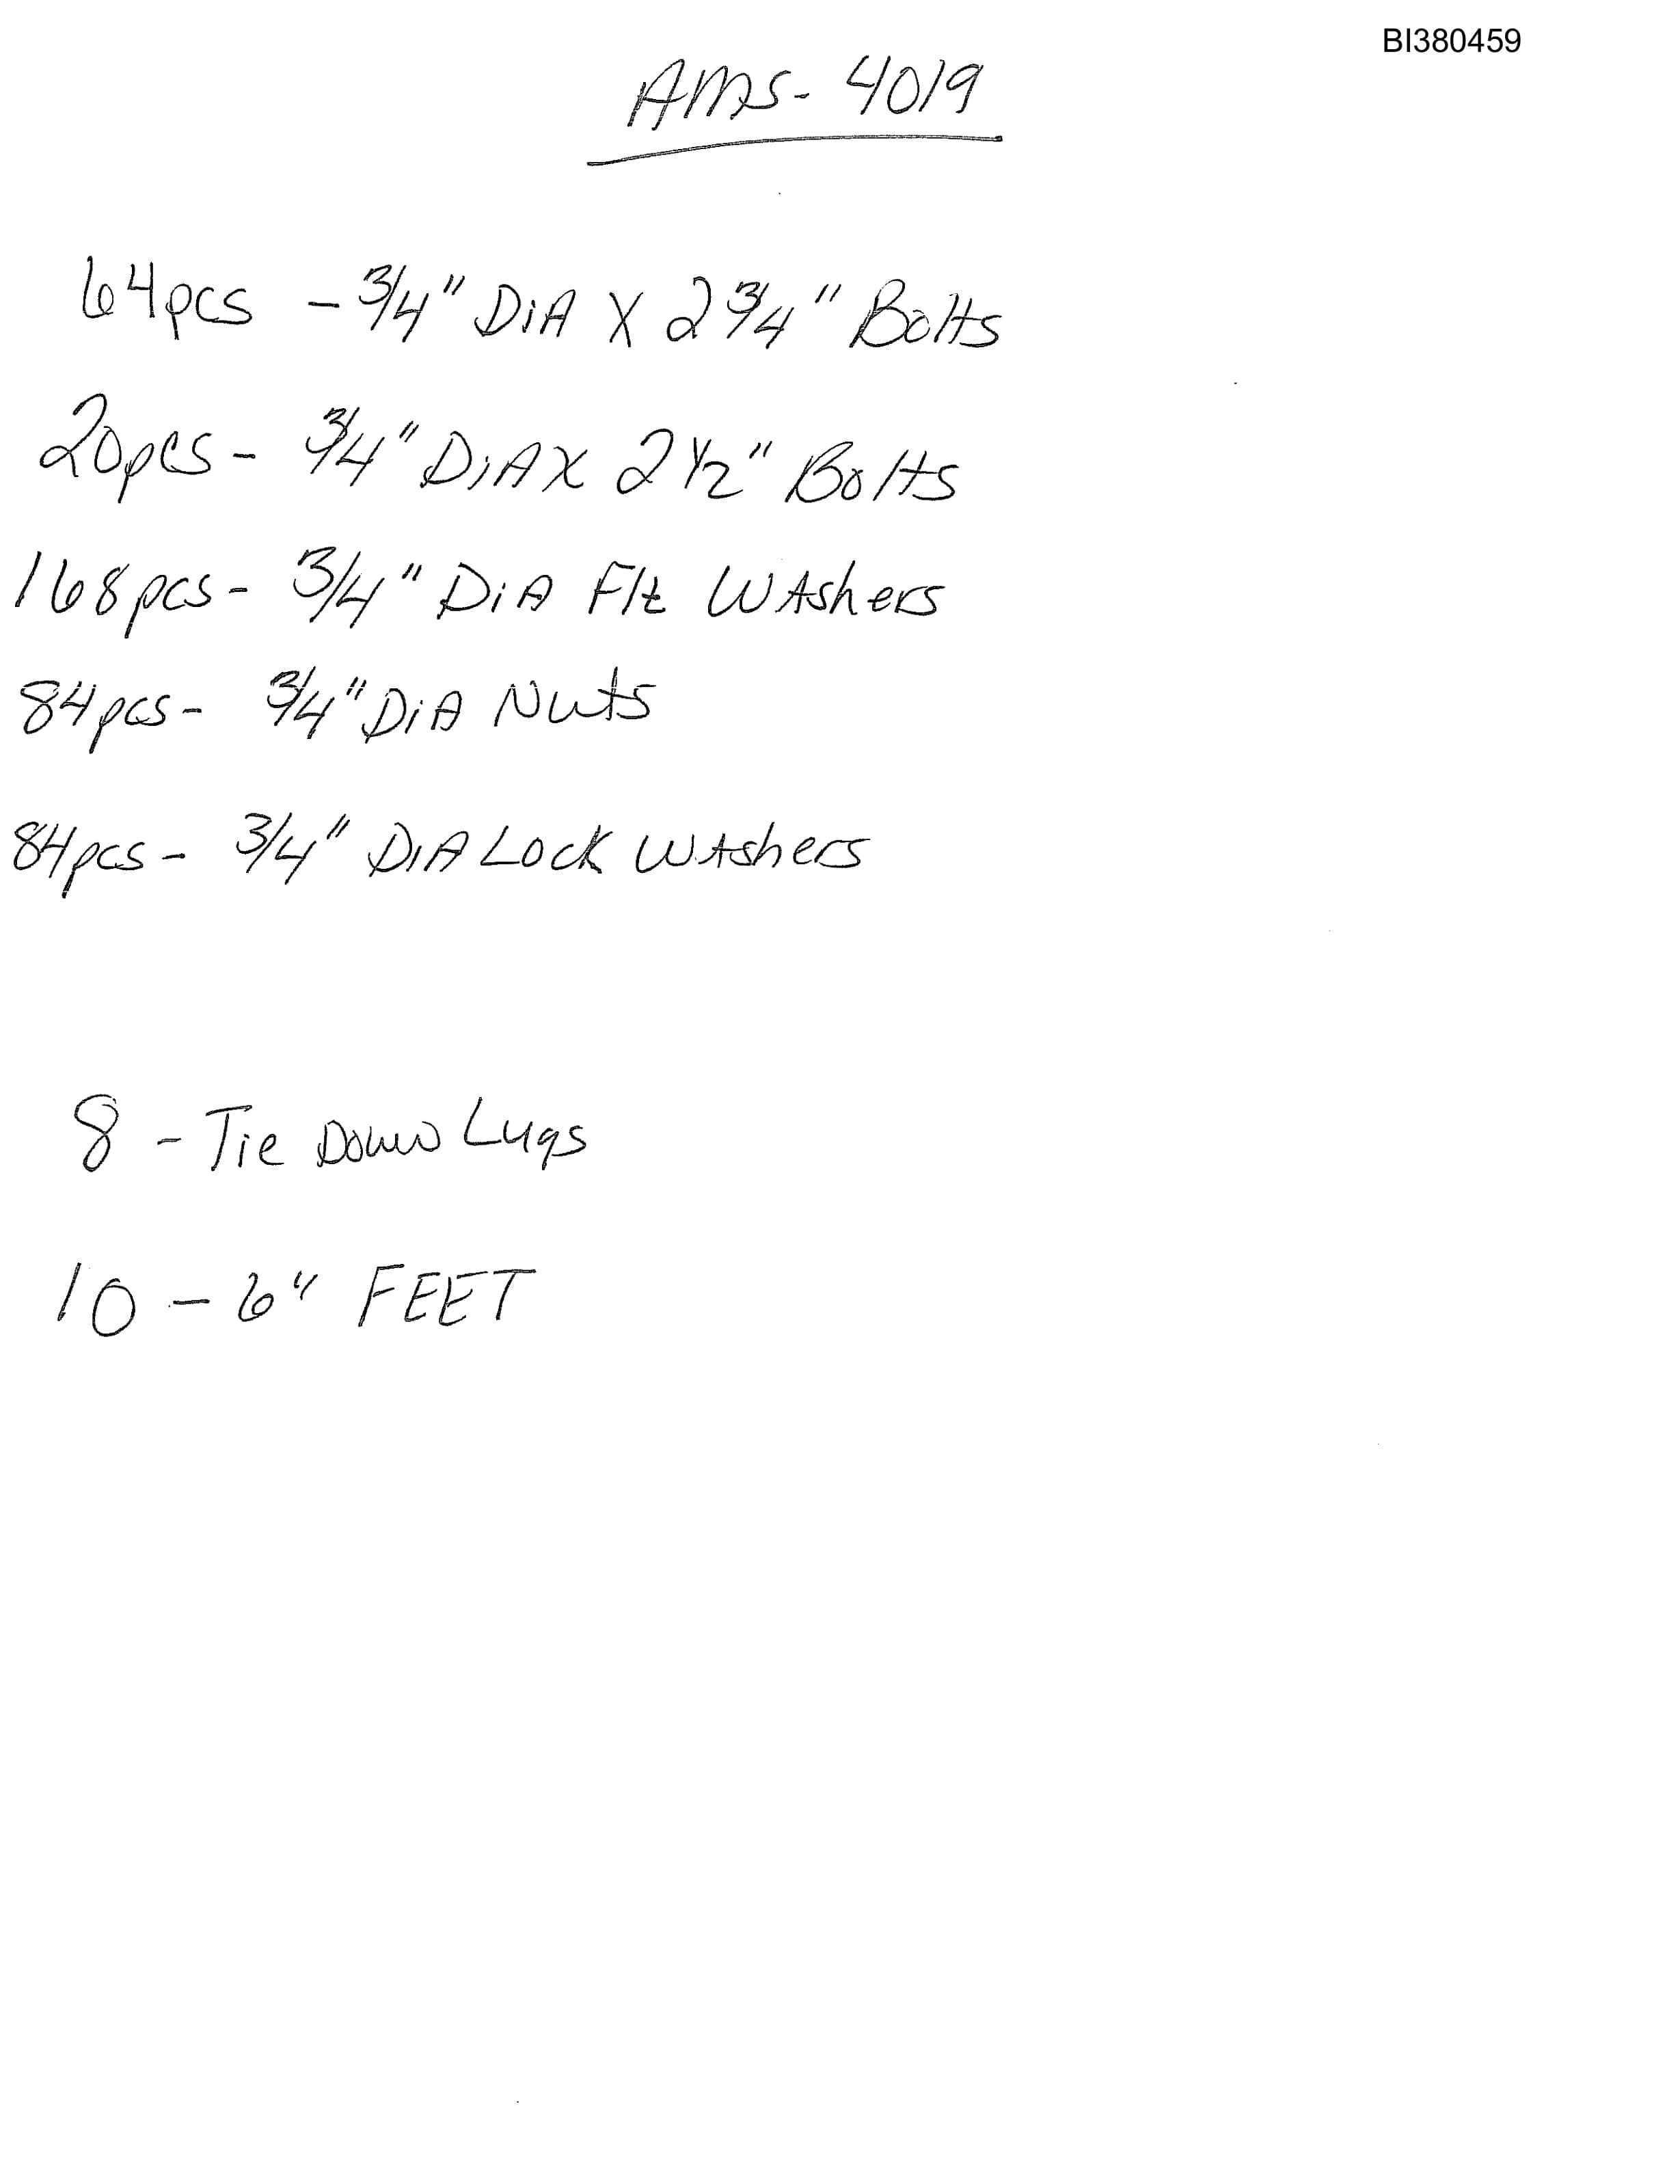 BI380459
AMS- 4019
64pcs - 3/4" DiA X 2 3/4" Bolts
20pcs - 3/4" DiA X 2 1/2" Bolts
168pcs - 3/4" DiA Flt WAshers
84pcs - 3/4" DiA Nuts
84pcs - 3/4" DiA Lock WAshers
8 - Tie Down Lugs
10 - 6" FEET